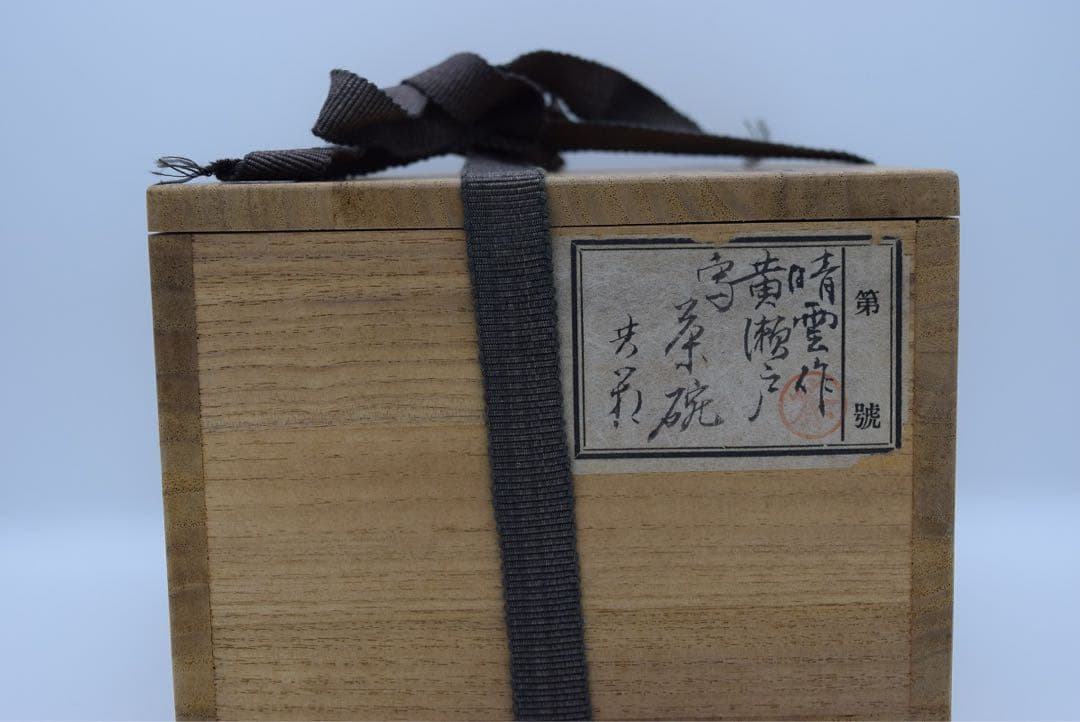 第 號
晴雲作
黄瀬戸
写茶碗
共箱